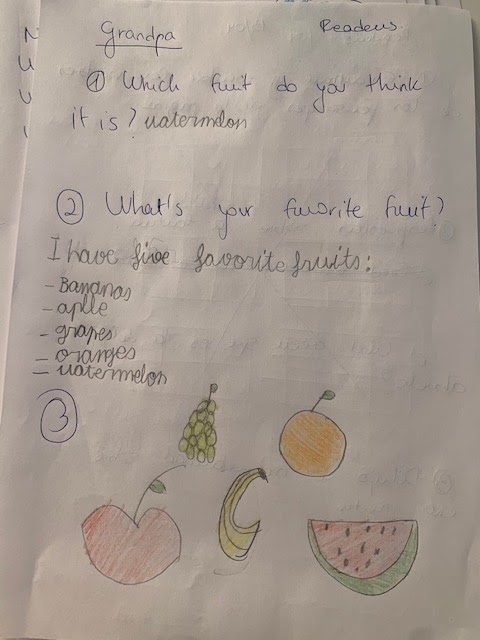 Grandpa
Readeus
① Which fuit do you think
it is? watermelon
② What's your favorite fuit?
I have five favorite fruits:
- Bananas
- aplle
- grapes
- oranges
= watermelon
③